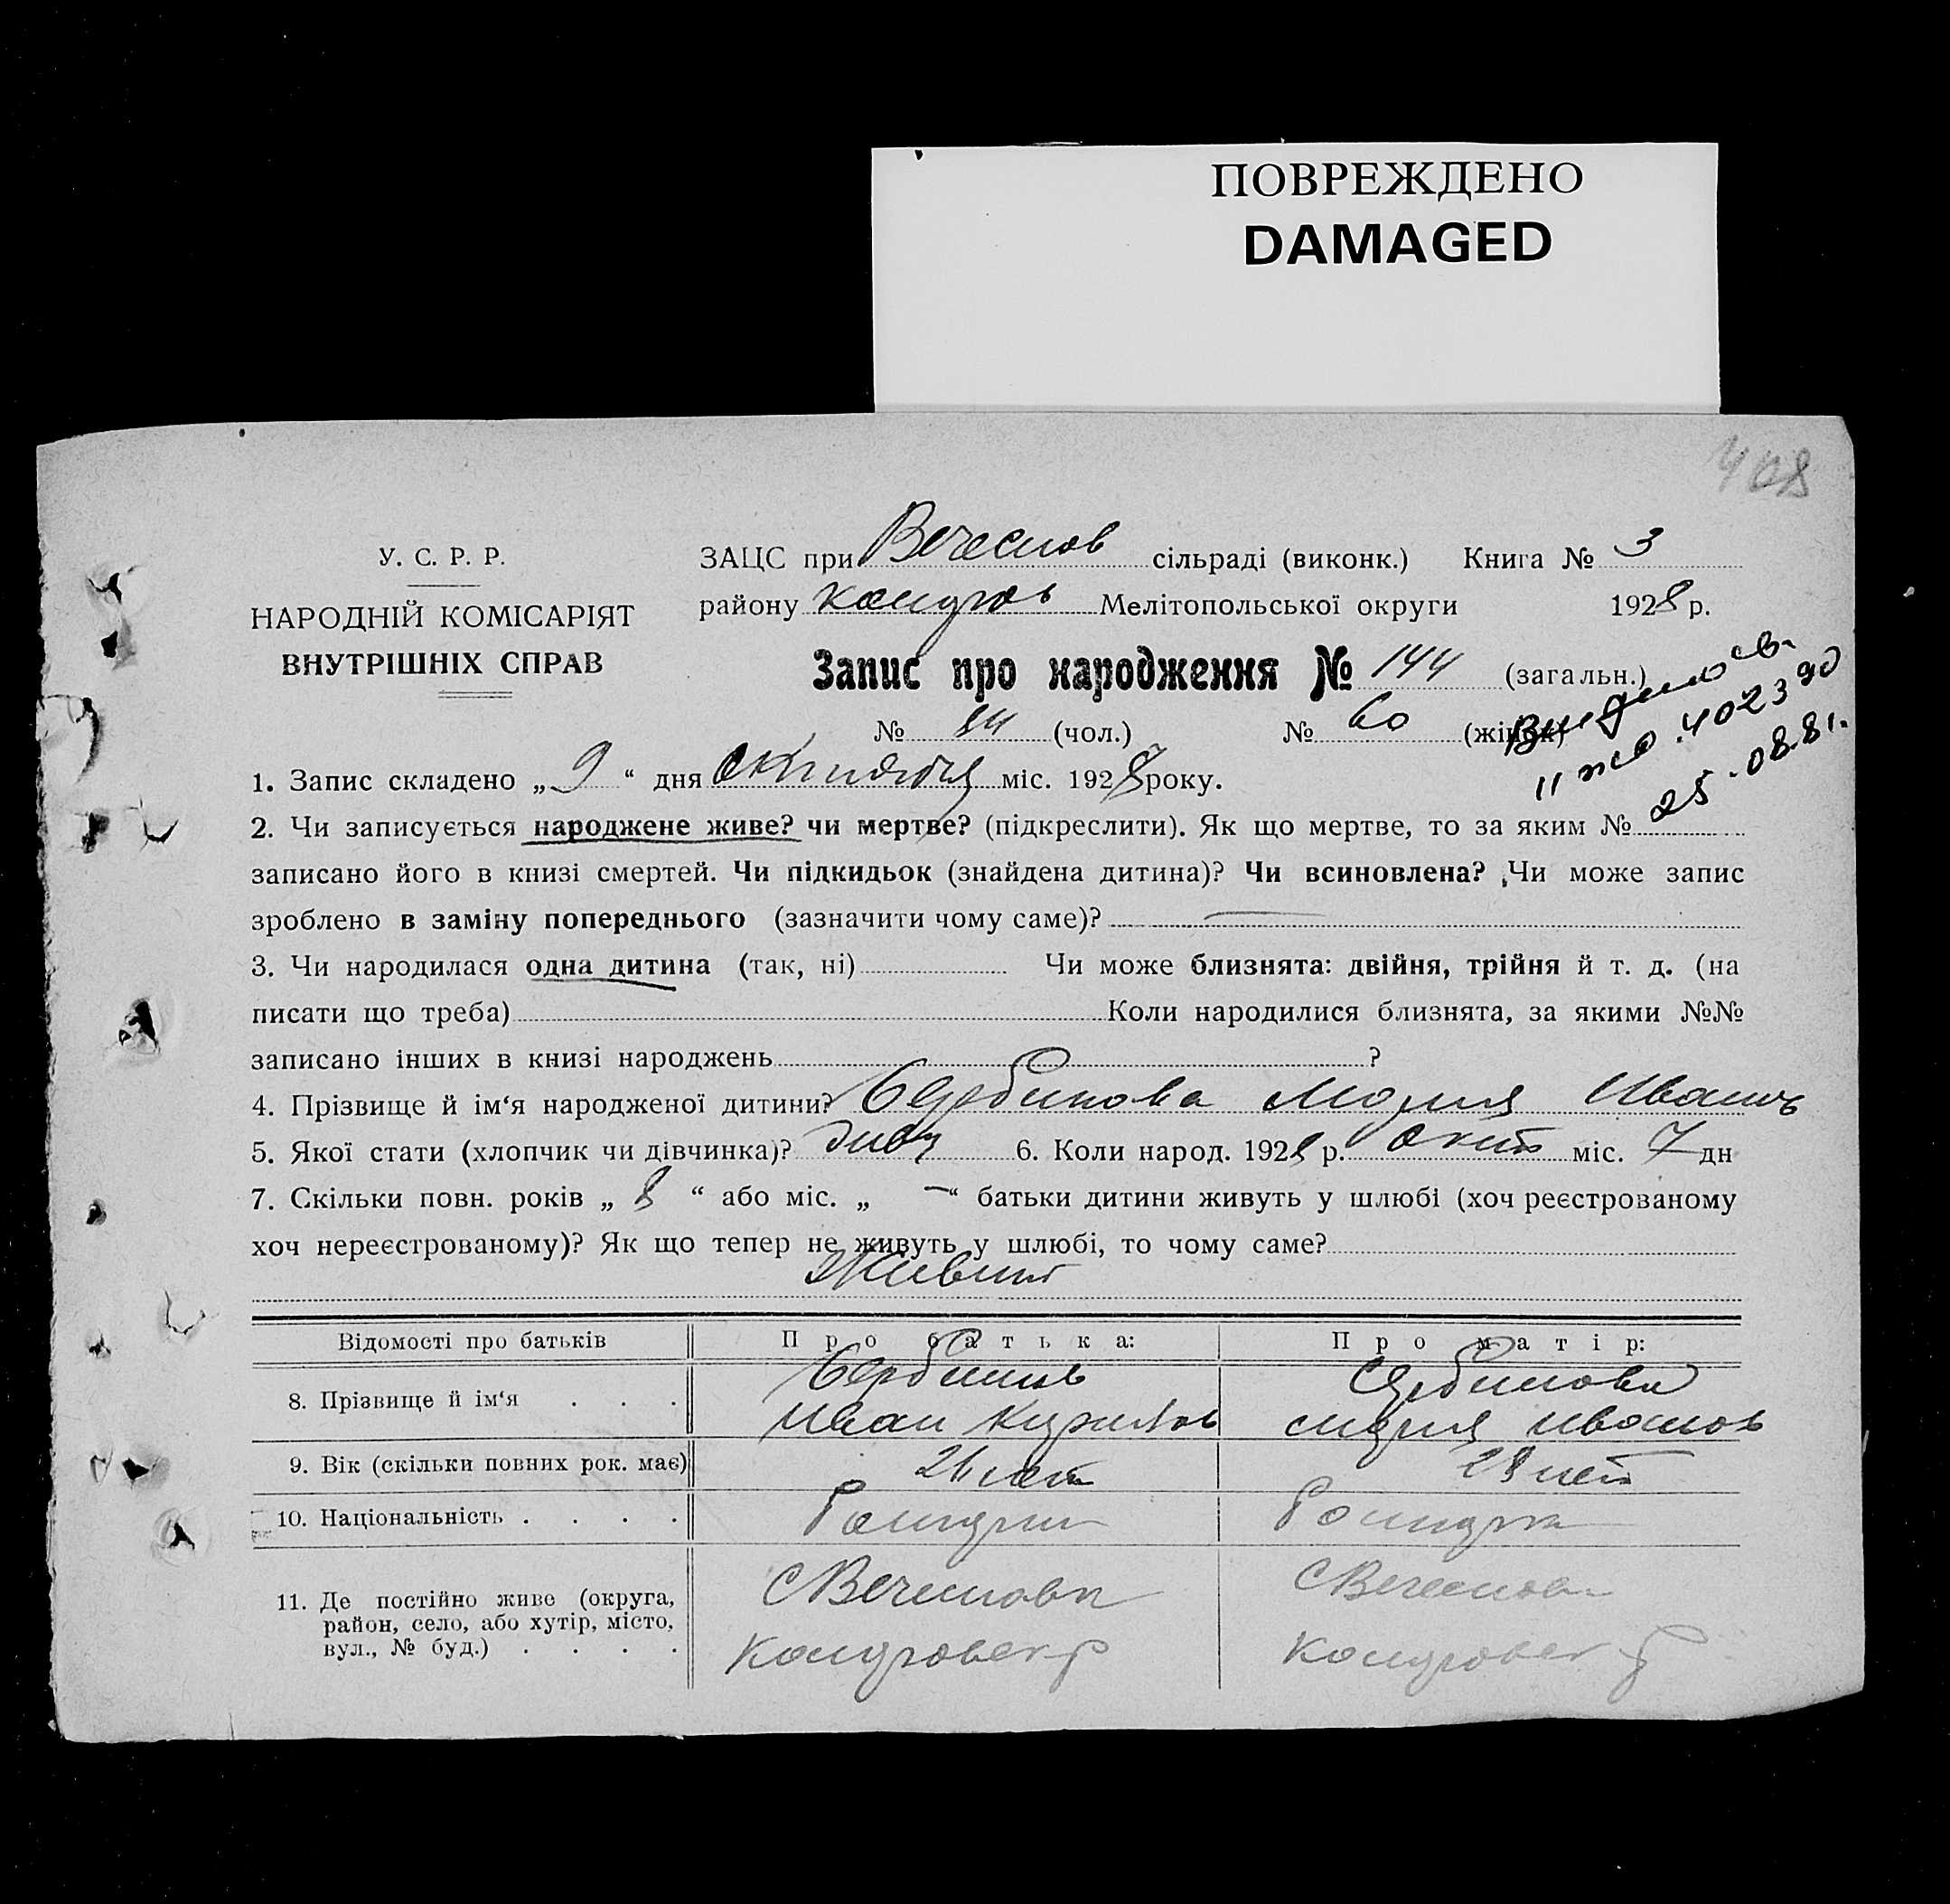 ПОВРЕЖДЕНО
DAMAGED
408
У. С. Р. Р.
НАРОДНІЙ КОМІСАРІЯТ
ВНУТРІШНІХ СПРАВ
ЗАЦС при Вячеслов сільраді (виконк.) Книга № 3
району Мелітопольської округи 1928 р.
Запис про народження № 144 (загальн.)
№ 84 (чол.) № 60 (жінок)
Видано св.
II жо 402390
25.08.81.
1. Запис складено „ 9 “ дня Октября міс. 1928 року.
2. Чи записується народжене живе? чи мертве? (підкреслити). Як що мертве, то за яким №
записано його в книзі смертей. Чи підкидьок (знайдена дитина)? Чи всиновлена? Чи може запис
зроблено в заміну попереднього (зазначити чому саме)? —
3. Чи народилася одна дитина (так, ні) Чи може близнята: двійня, трійня й т. д. (на
писати що треба) Коли народилися близнята, за якими №№
записано інших в книзі народжень ?
4. Прізвище й ім‘я народженої дитини? Сербинова Мария Иванов
5. Якої стати (хлопчик чи дівчинка)? 6. Коли народ. 1928 р. Окт міс. 7 дн
7. Скільки повн. років „ 8 “ або міс. „ — “ батьки дитини живуть у шлюбі (хоч реєстрованому
хоч нереєстрованому)? Як що тепер не живуть у шлюбі, то чому саме?
Живут
Відомості про батьків Про батька: Про матір:
8. Прізвище й ім‘я . . . Сербинов Сербинова
Иван Кирилов Мария Иванов
9. Вік (скільки повних рок. має) 26 лет 28 лет
10. Національність . . . .
11. Де постійно живе (округа,
район, село, або хутір, місто,
вул., № буд.) . . . .